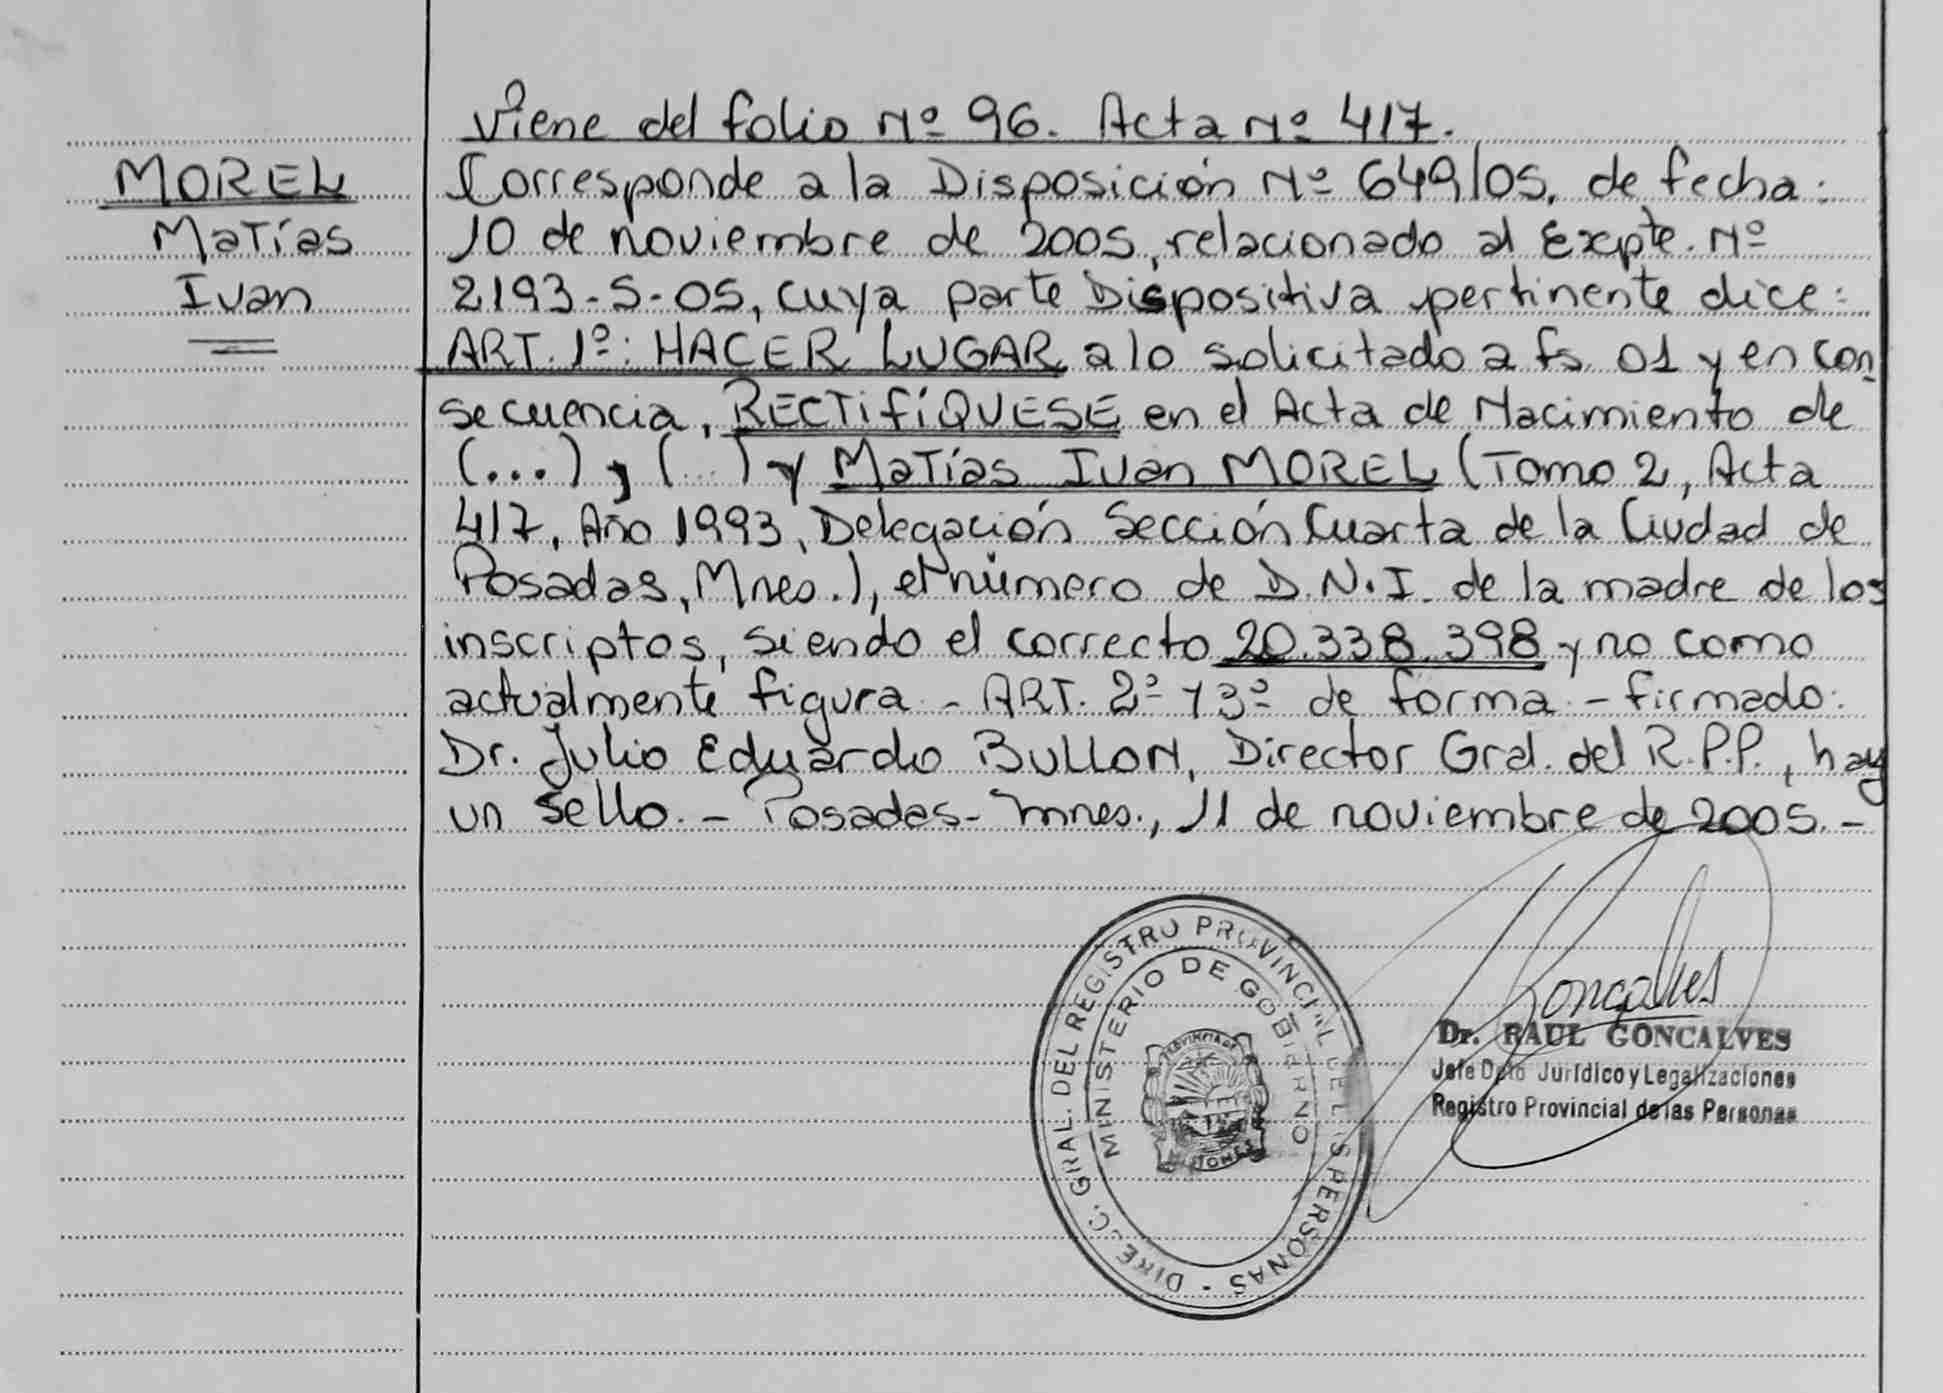 Viene del folio Nº 96. Acta Nº 417.
MOREL
Matías
Ivan
Corresponde a la Disposición Nº 649/05, de fecha:
10 de noviembre de 2005, relacionado al Expte. Nº
2193-S-05, cuya parte Dispositiva pertinente dice:
ART. 1º: HACER LUGAR a lo solicitado a fs. 01 y en con
secuencia, RECTIFÍQUESE en el Acta de Nacimiento de
(...), (...) y Matías Ivan MOREL (Tomo 2, Acta
417, Año 1993, Delegación Sección Cuarta de la Ciudad de
Posadas, Mnes.), el número de D.N.I. de la madre de los
inscriptos, siendo el correcto 20.338.398 y no como
actualmente figura.- ART. 2º y 3º de forma.- firmado:
Dr. Julio Eduardo BULLON, Director Gral. del R.P.P., hay
un sello.- Posadas- Mnes., 11 de noviembre de 2005.-
DIREC. GRAL. DEL REGISTRO PROVINCIAL DE LAS PERSONAS -
MINISTERIO DE GOBIERNO
PROVINCIA DE
MISIONES
Gonçalves
Dr. RAUL GONCALVES
Jefe Dpto Jurídico y Legalizaciones
Registro Provincial de las Personas